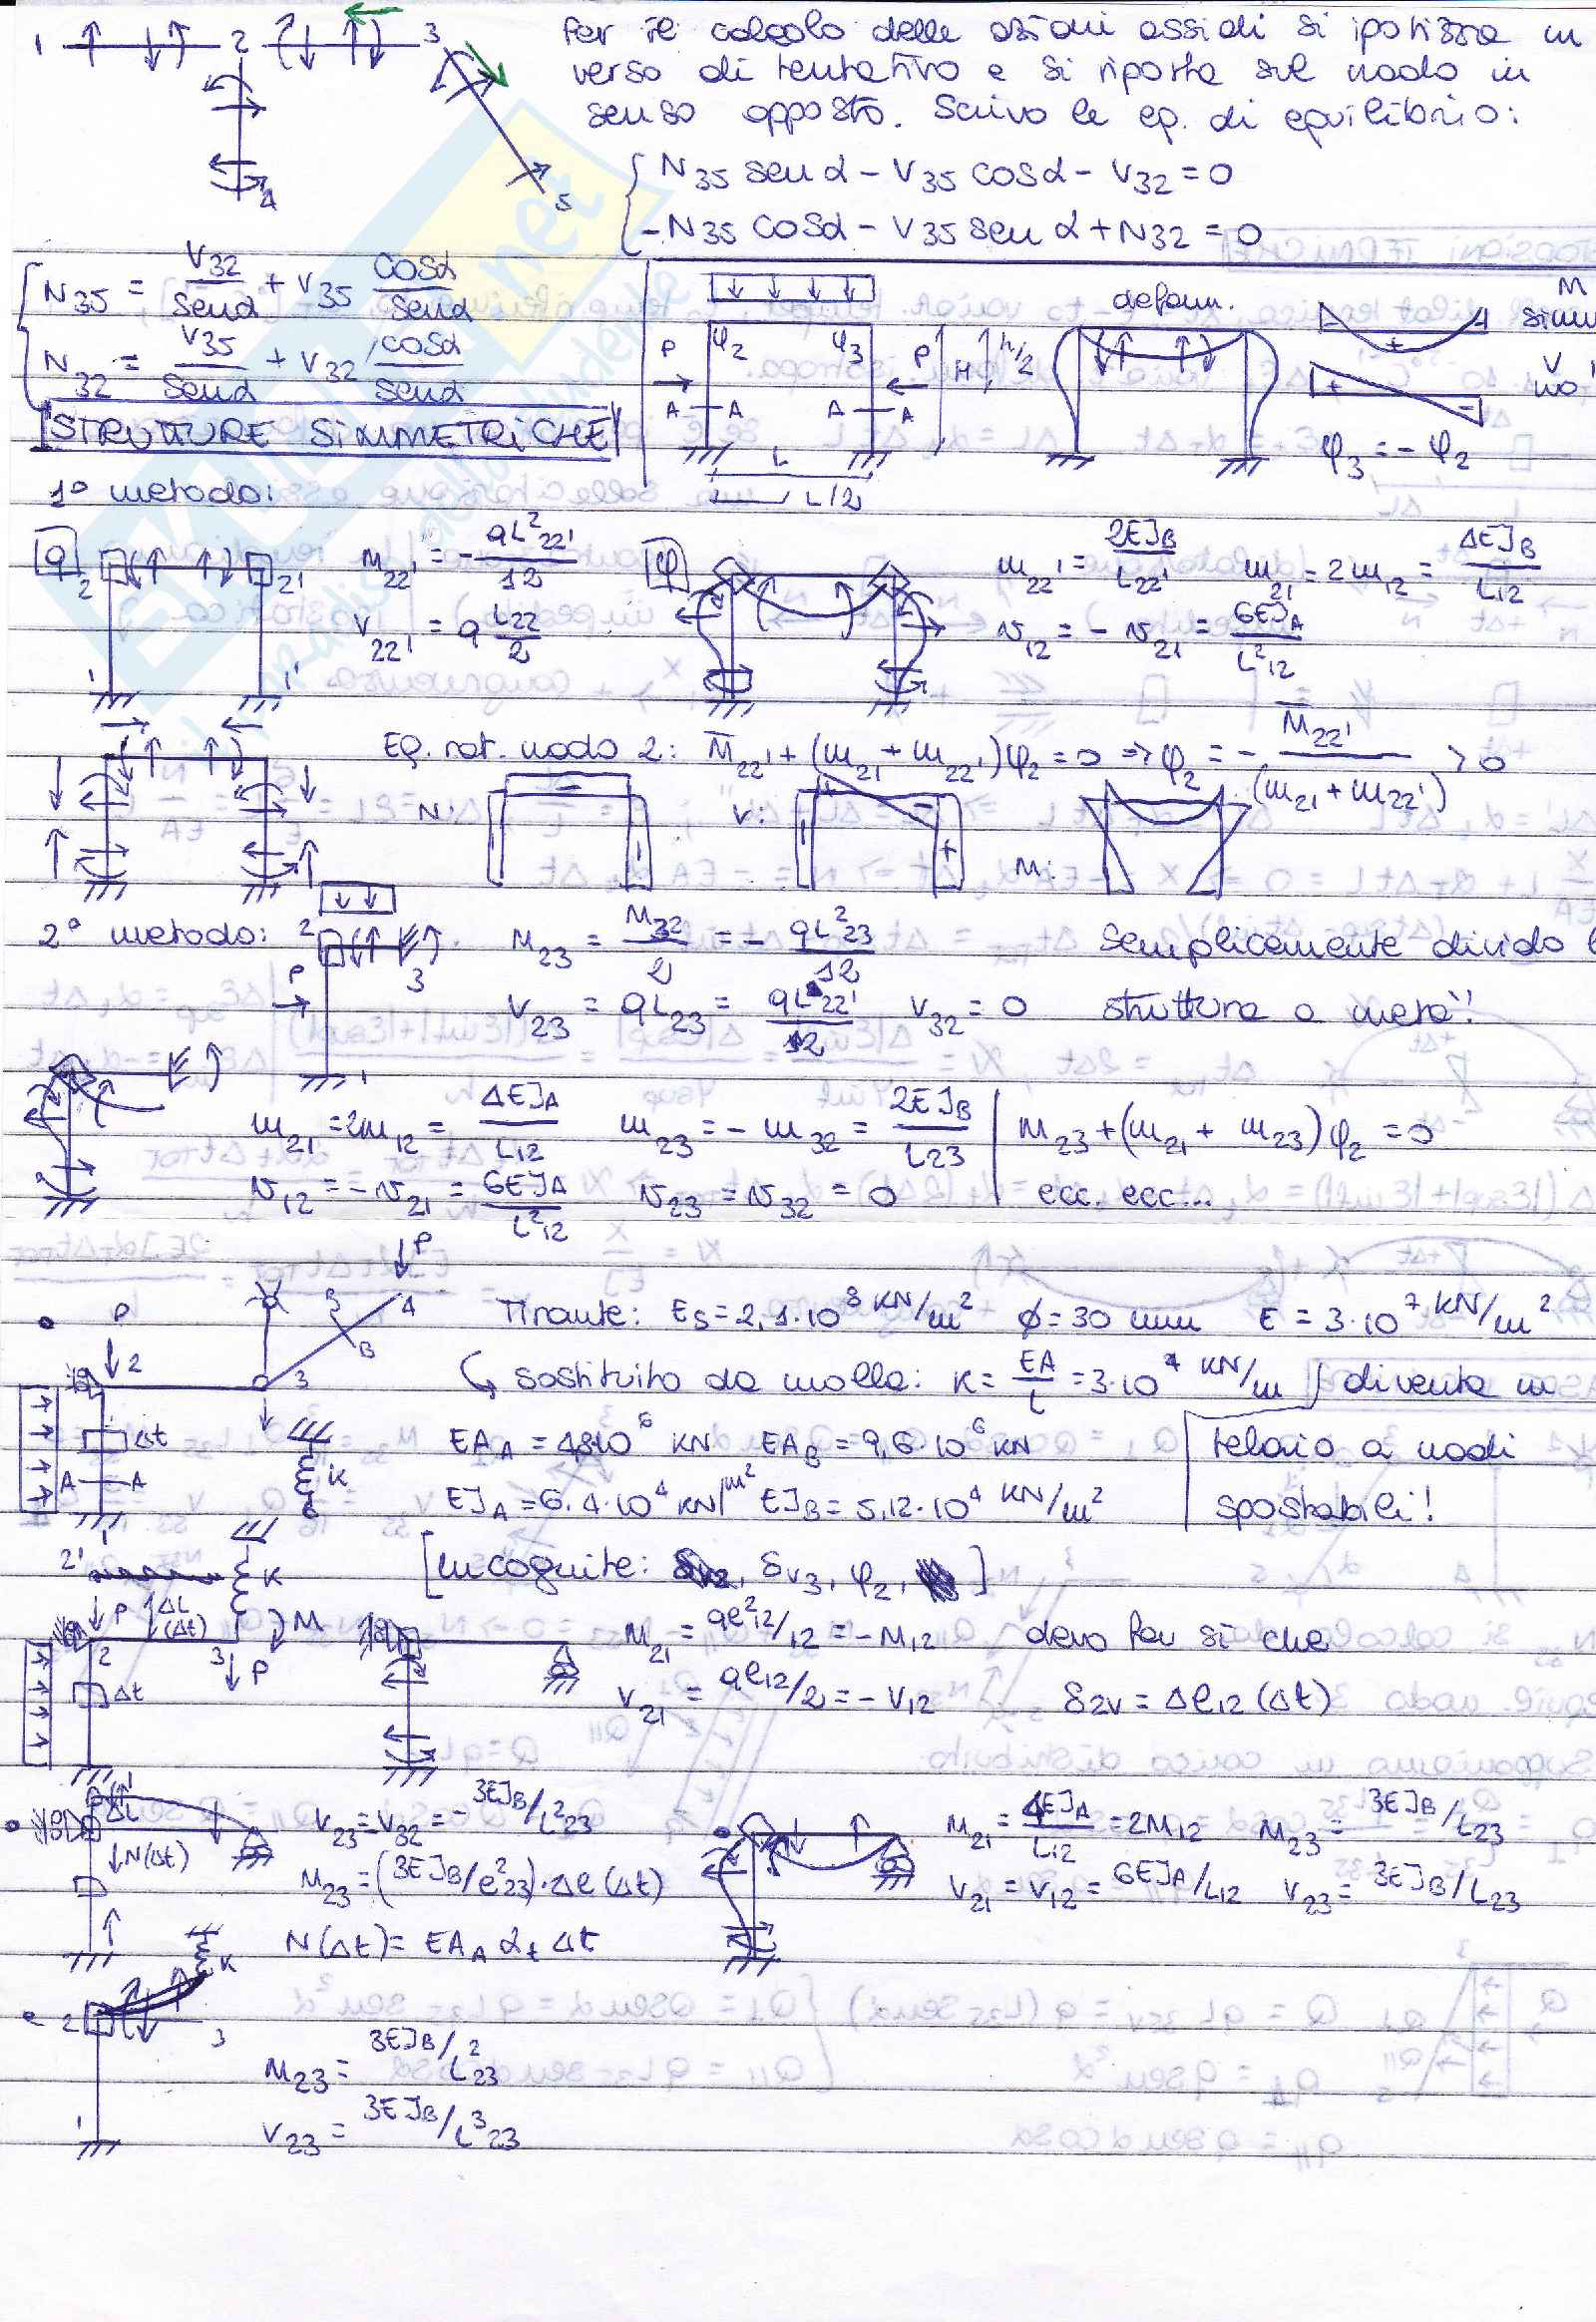 1 2 3
4 5
Per il calcolo delle azioni assiali si ipotizza un
verso di tentativo e si riporta sul nodo in
senso opposto. Scrivo le eq. di equilibrio:
{ N35 sen α - V35 cos α - V32 = 0
-N35 cos α - V35 sen α + N32 = 0
{ N35 = V32/sen α + V35 cos α/sen α
N32 = V35/sen α + V32 cos α/sen α
P φ2 φ3 P H h/2
A A A A
L
L/2
deform.
M
V no
φ3 = - φ2
STRUTTURE SIMMETRICHE
1° metodo:
q 2 2' 1 1'
M22' = - qL²22'/12
V22' = q L22/2
φ
m22' = 2EJB/L22' m21 = 2m12 = 4EJB/L12
v12 = - v21 = 6EJA/L²12
Eq. rot. nodo 2: M̅22' + (m21 + m22')φ2 = 0 => φ2 = - M̅22'/(m21 + m22') > 0
N: V: M:
2° metodo: 2 3 P 1
M23 = M32/2 = - qL²23/12 Semplicemente divido
V23 = qL23 = qL22'/2 V32 = 0 struttura a metà!
m21 = 2m12 = 4EJA/L12 m23 = - m32 = 2EJB/L23 | M23 + (m21 + m23)φ2 = 0
v12 = - v21 = 6EJA/L²12 v23 = v32 = 0 ecc. ecc...
P 2 3 B B 4 P
Δt A A K 1
Tirante: Es = 2,1·10⁸ KN/m² φ = 30 mm E = 3·10⁷ KN/m²
↳ sostituito da molla: K = EA/L = 3·10⁴ KN/m diventa un
EAA = 4,8·10⁶ KN EAB = 9,6·10⁶ KN telaio a nodi
EJA = 6.4·10⁴ KN/m² EJB = 5,12·10⁴ KN/m² spostabili!
[Incognite: δv3, φ2, ]
2' K P ΔL (Δt) M 2 3 P Δt 1
M21 = ql²12/12 = - M12 devo far sì che
V21 = ql12/2 = - V12 δ2v = Δl12 (Δt)
ΔL N(Δt)
V23 = V32 = - 3EJB/L²23
M23 = (3EJB/l²23)·Δl(Δt)
N(Δt) = EAA αt Δt
M21 = 4EJA/L12 = 2M12 M23 = 3EJB/L23
V21 = V12 = 6EJA/L12 V23 = 3EJB/L23
K 2 3 1
M23 = 3EJB/L²23
V23 = 3EJB/L³23